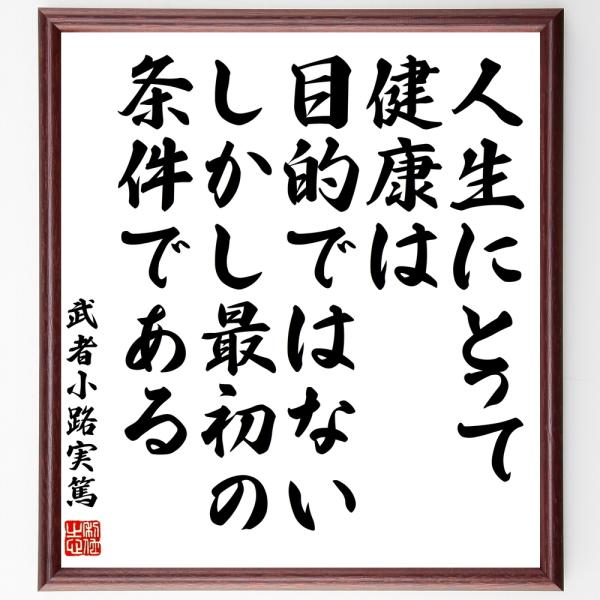 人生にとって
健康は
目的ではない
しかし最初の
条件である
武者小路実篤